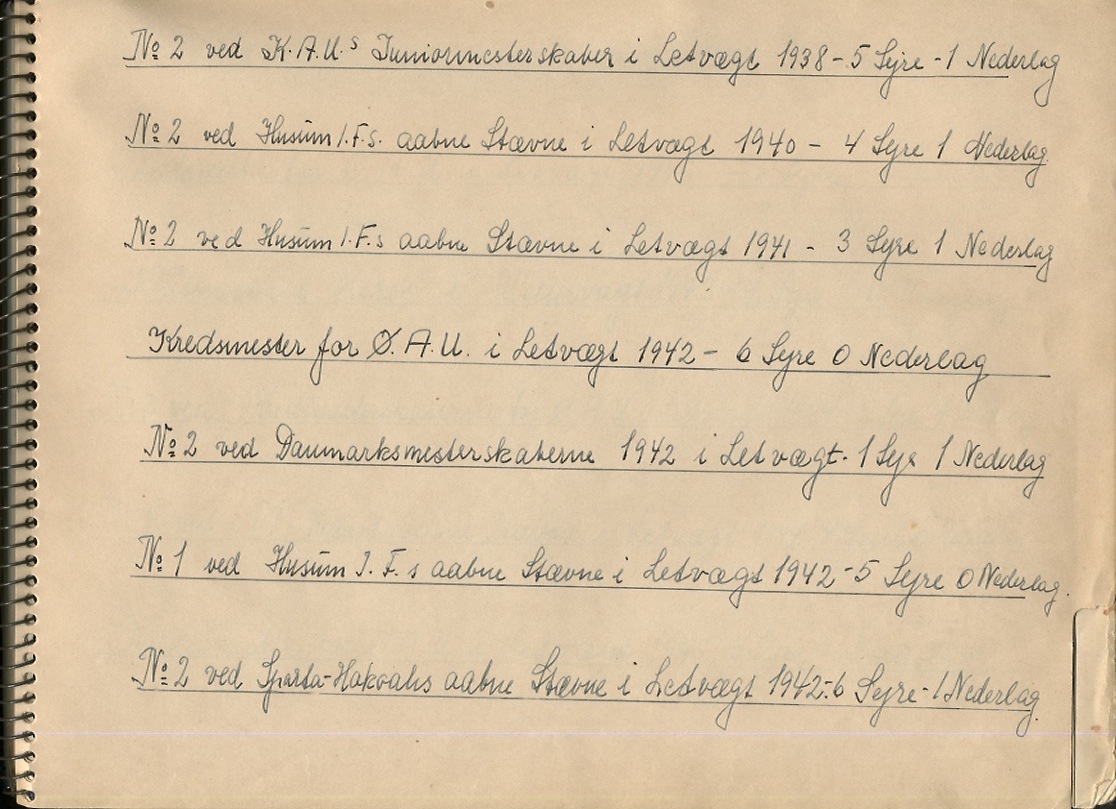 No 2 ved K.A.U.s Juniormesterskaber i Letvægt 1938 - 5 Sejre - 1 Nederlag
No 2 ved Husum I.F.s. aabne Stævne i Letvægt 1940 - 4 Sejre 1 Nederlag.
No 2 ved Husum I.F.s aabne Stævne i Letvægt 1941 - 3 Sejre 1 Nederlag
Kredsmester for Ø.A.U. i Letvægt 1942 - 6 Sejre 0 Nederlag
No 2 ved Danmarksmesterskaberne 1942 i Letvægt - 1 Sejr 1 Nederlag
No 1 ved Husum I.F.s aabne Stævne i Letvægt 1942 - 5 Sejre 0 Nederlag.
No 2 ved Sparta-Hakoahs aabne Stævne i Letvægt 1942 - 6 Sejre - 1 Nederlag.